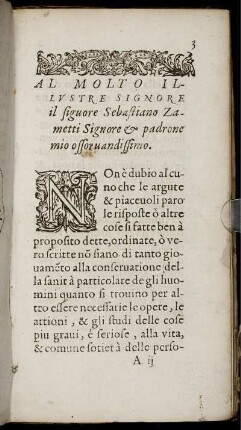 3
AL MOLTO IL-
LVSTRE SIGNORE
il siguore Sebastiano Za-
metti Signore & padrone
mio osseruandissimo.
NOn è dubio al cu-
no che le argute
& piaceuoli paro
le risposte ò altre
cose si fatte ben à
proposito dette, ordinate, ò ve-
ro scritte nō siano di tanto gio-
uamēto alla conseruatione del-
la sanità particolare de gli huo-
mini quanto si trouino per al-
tro essere necessarie le opere, le
attioni, & gli studi delle cose
piu graui, é seriose, alla vita,
& comune sotietà delle perso-
A ij